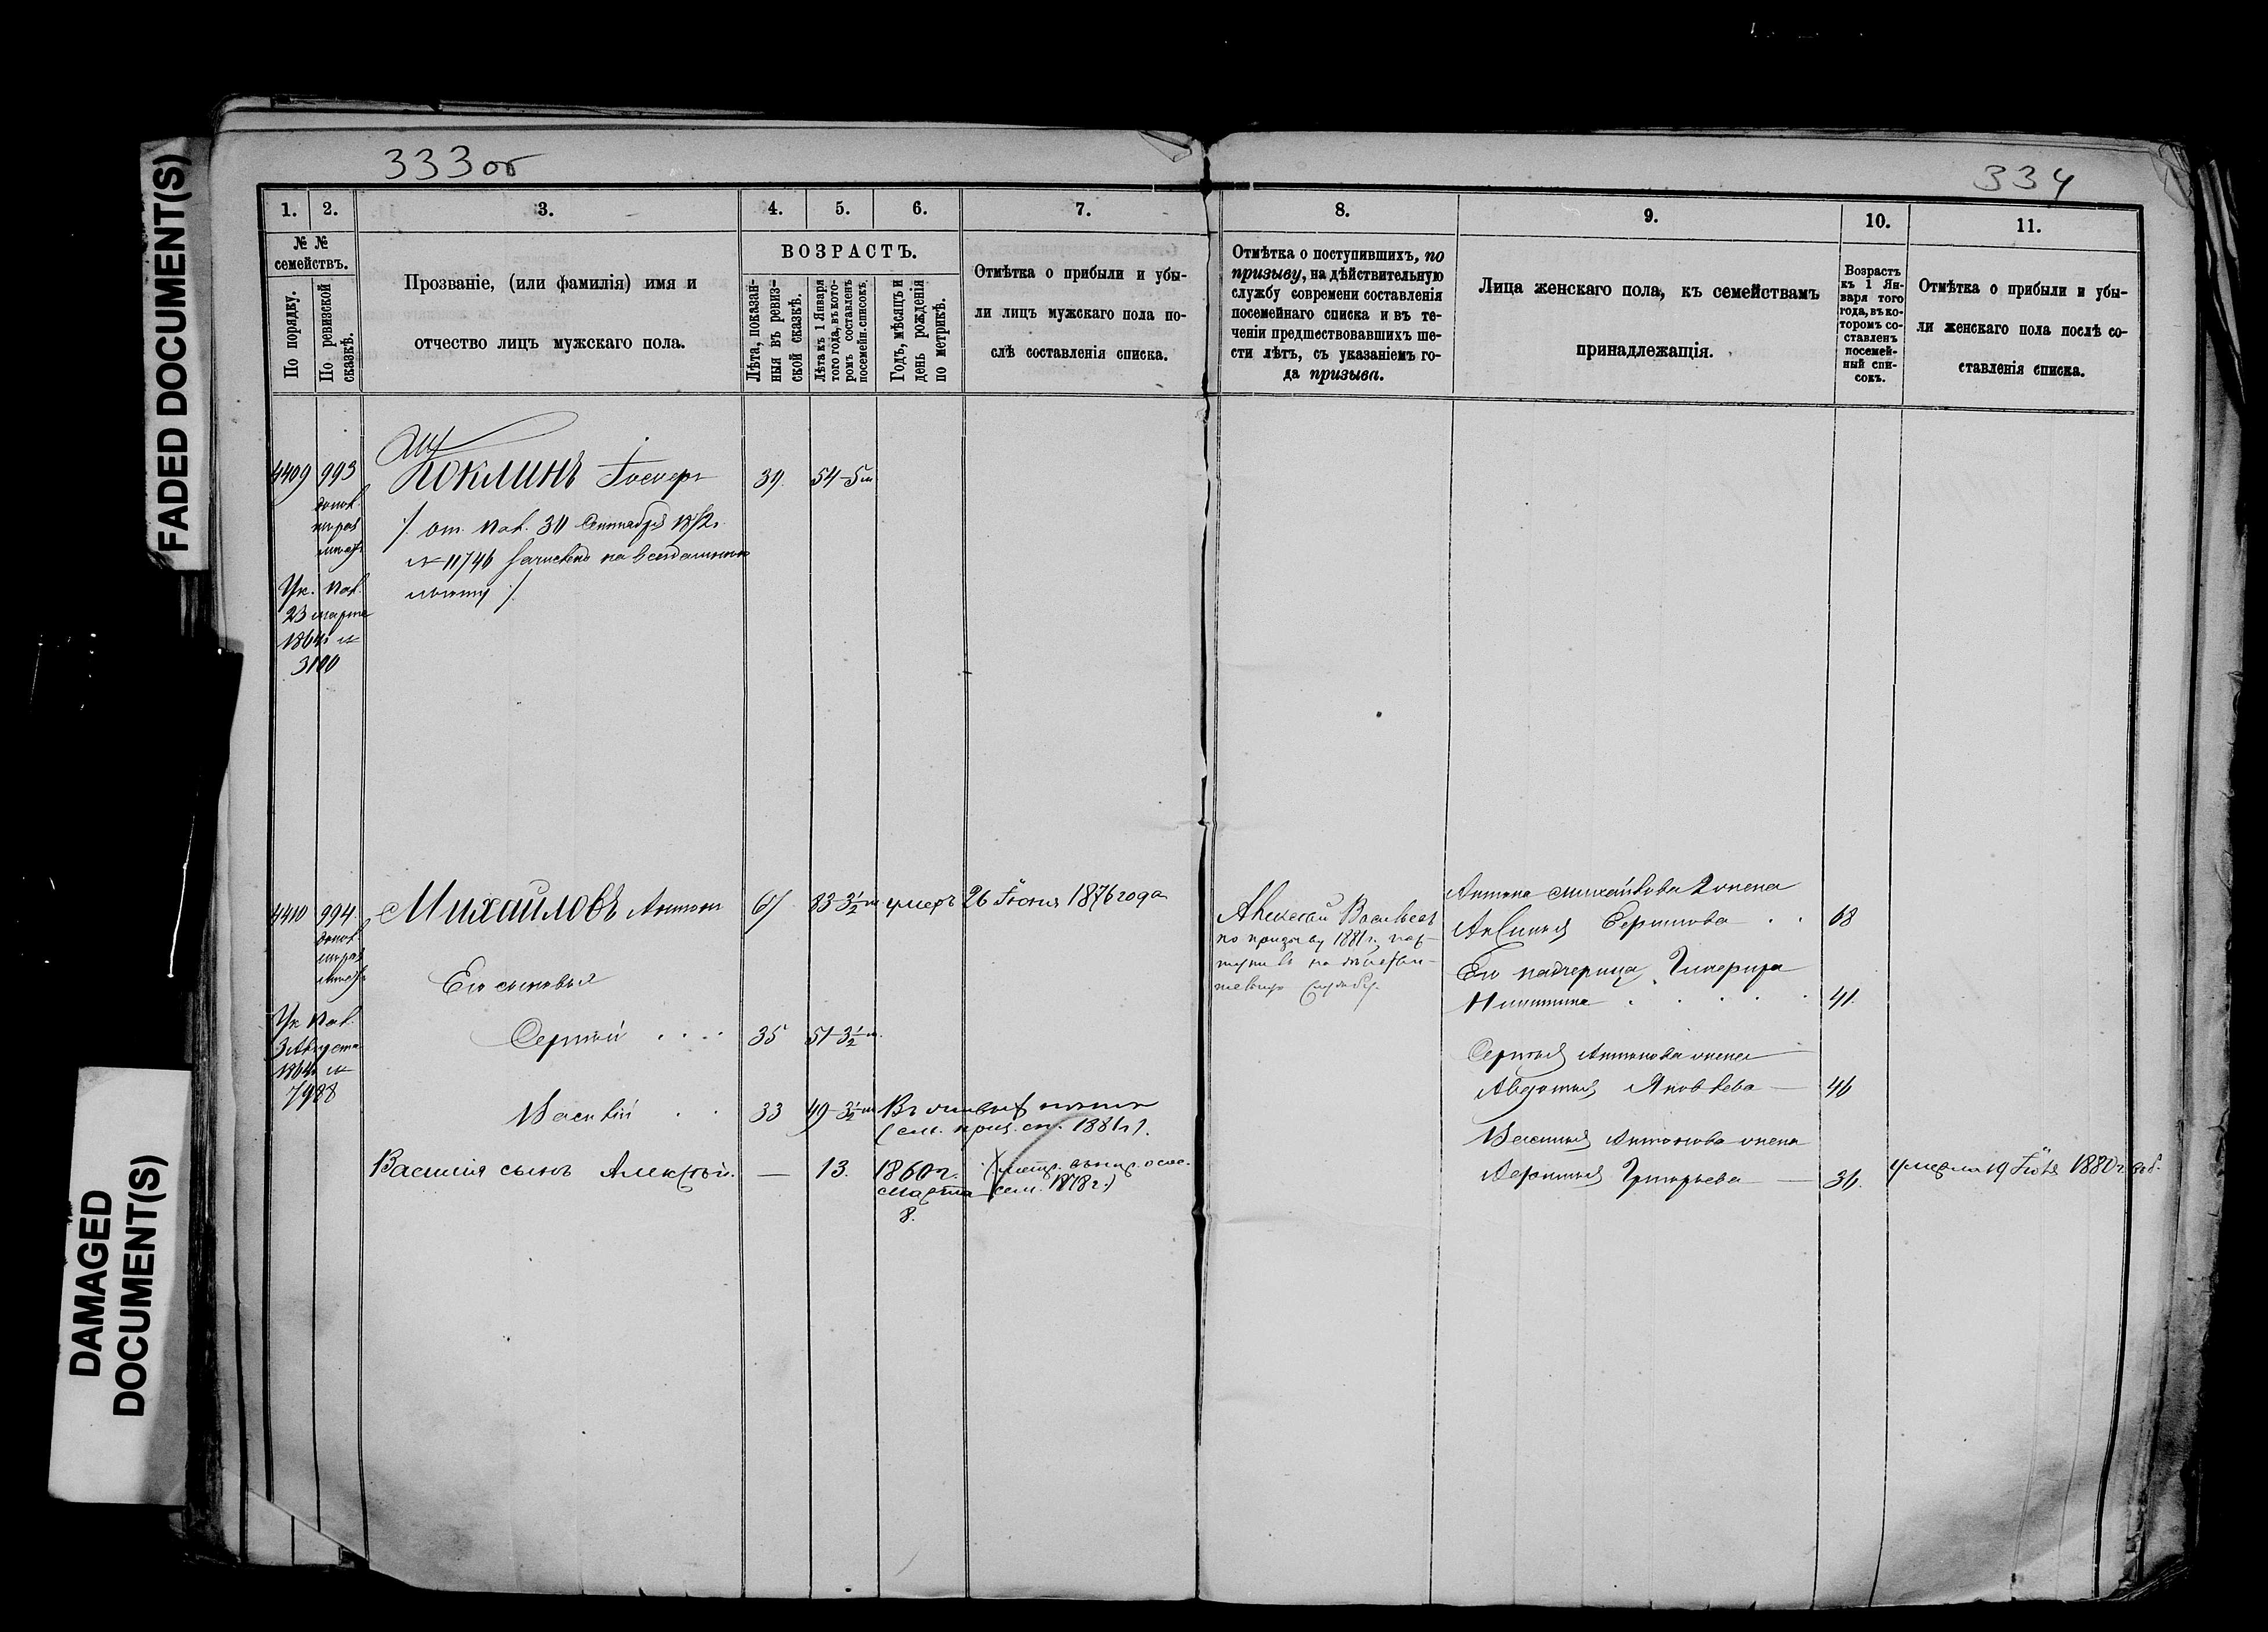 FADED DOCUMENT(S)
DAMAGED
DOCUMENT(S)
333об
1.
2.
3.
4.
5.
6.
7.
№ №
семействъ.
По порядку.
По ревизской
сказкѣ.
Прозваніе, (или фамилія) имя и
отчество лицъ мужскаго пола.
ВОЗРАСТЪ.
Лѣта, показан-
ныя въ ревиз-
ской сказкѣ.
Лѣта къ 1 Января
того года, въ кото-
ромъ составленъ
посемейн. списокъ.
Годъ, мѣсяцъ и
день рожденія
по метрикѣ.
Отмѣтка о прибыли и убы-
ли лицъ мужскаго пола по-
слѣ составленія списка.
4409 993 Иоклинъ 39. 54-5м
от. Пол. 30 Сентября
№ 11746
Ук. Пол.
23 марта
1864г №
3100
4410 994 Михайловъ Антонъ 67 83-3½м умеръ 26 Іюня 1876 года
Его сыновья
Ук Пол.
3 Августа
1864г №
7988
Сергѣй 35 51-3½м.
Василій 33 49-3½м
1881г.
Василія сынъ Алексѣй. — 13. 1860г.
марта
8.
1878г.)
334
8.
9.
10.
11.
Отмѣтка о поступившихъ, по
призыву, на дѣйствительную
службу современи составленія
посемейнаго списка и въ те-
ченіи предшествовавшихъ ше-
сти лѣтъ, съ указаніемъ го-
да призыва.
Лица женскаго пола, къ семействамъ
принадлежащія.
Возрастъ
къ 1 Ян-
варя того
года, въ ко-
торомъ со-
ставленъ
посемей-
ный спи-
сокъ.
Отмѣтка о прибыли и убы-
ли женскаго пола послѣ со-
ставленія списка.
Алексѣй Васильевъ
по призыву 1881г. пос-
тупилъ на дѣйстви-
тельную службу.
Антона Михайлова 2 жена
Аксинья 68
Его падчерица
Никитина 41.
Сергѣя Антонова жена
Авдотья Яковлева — 46
Василья Антонова жена
Григорьева — 36. умерла 19 Іюля 1880г.